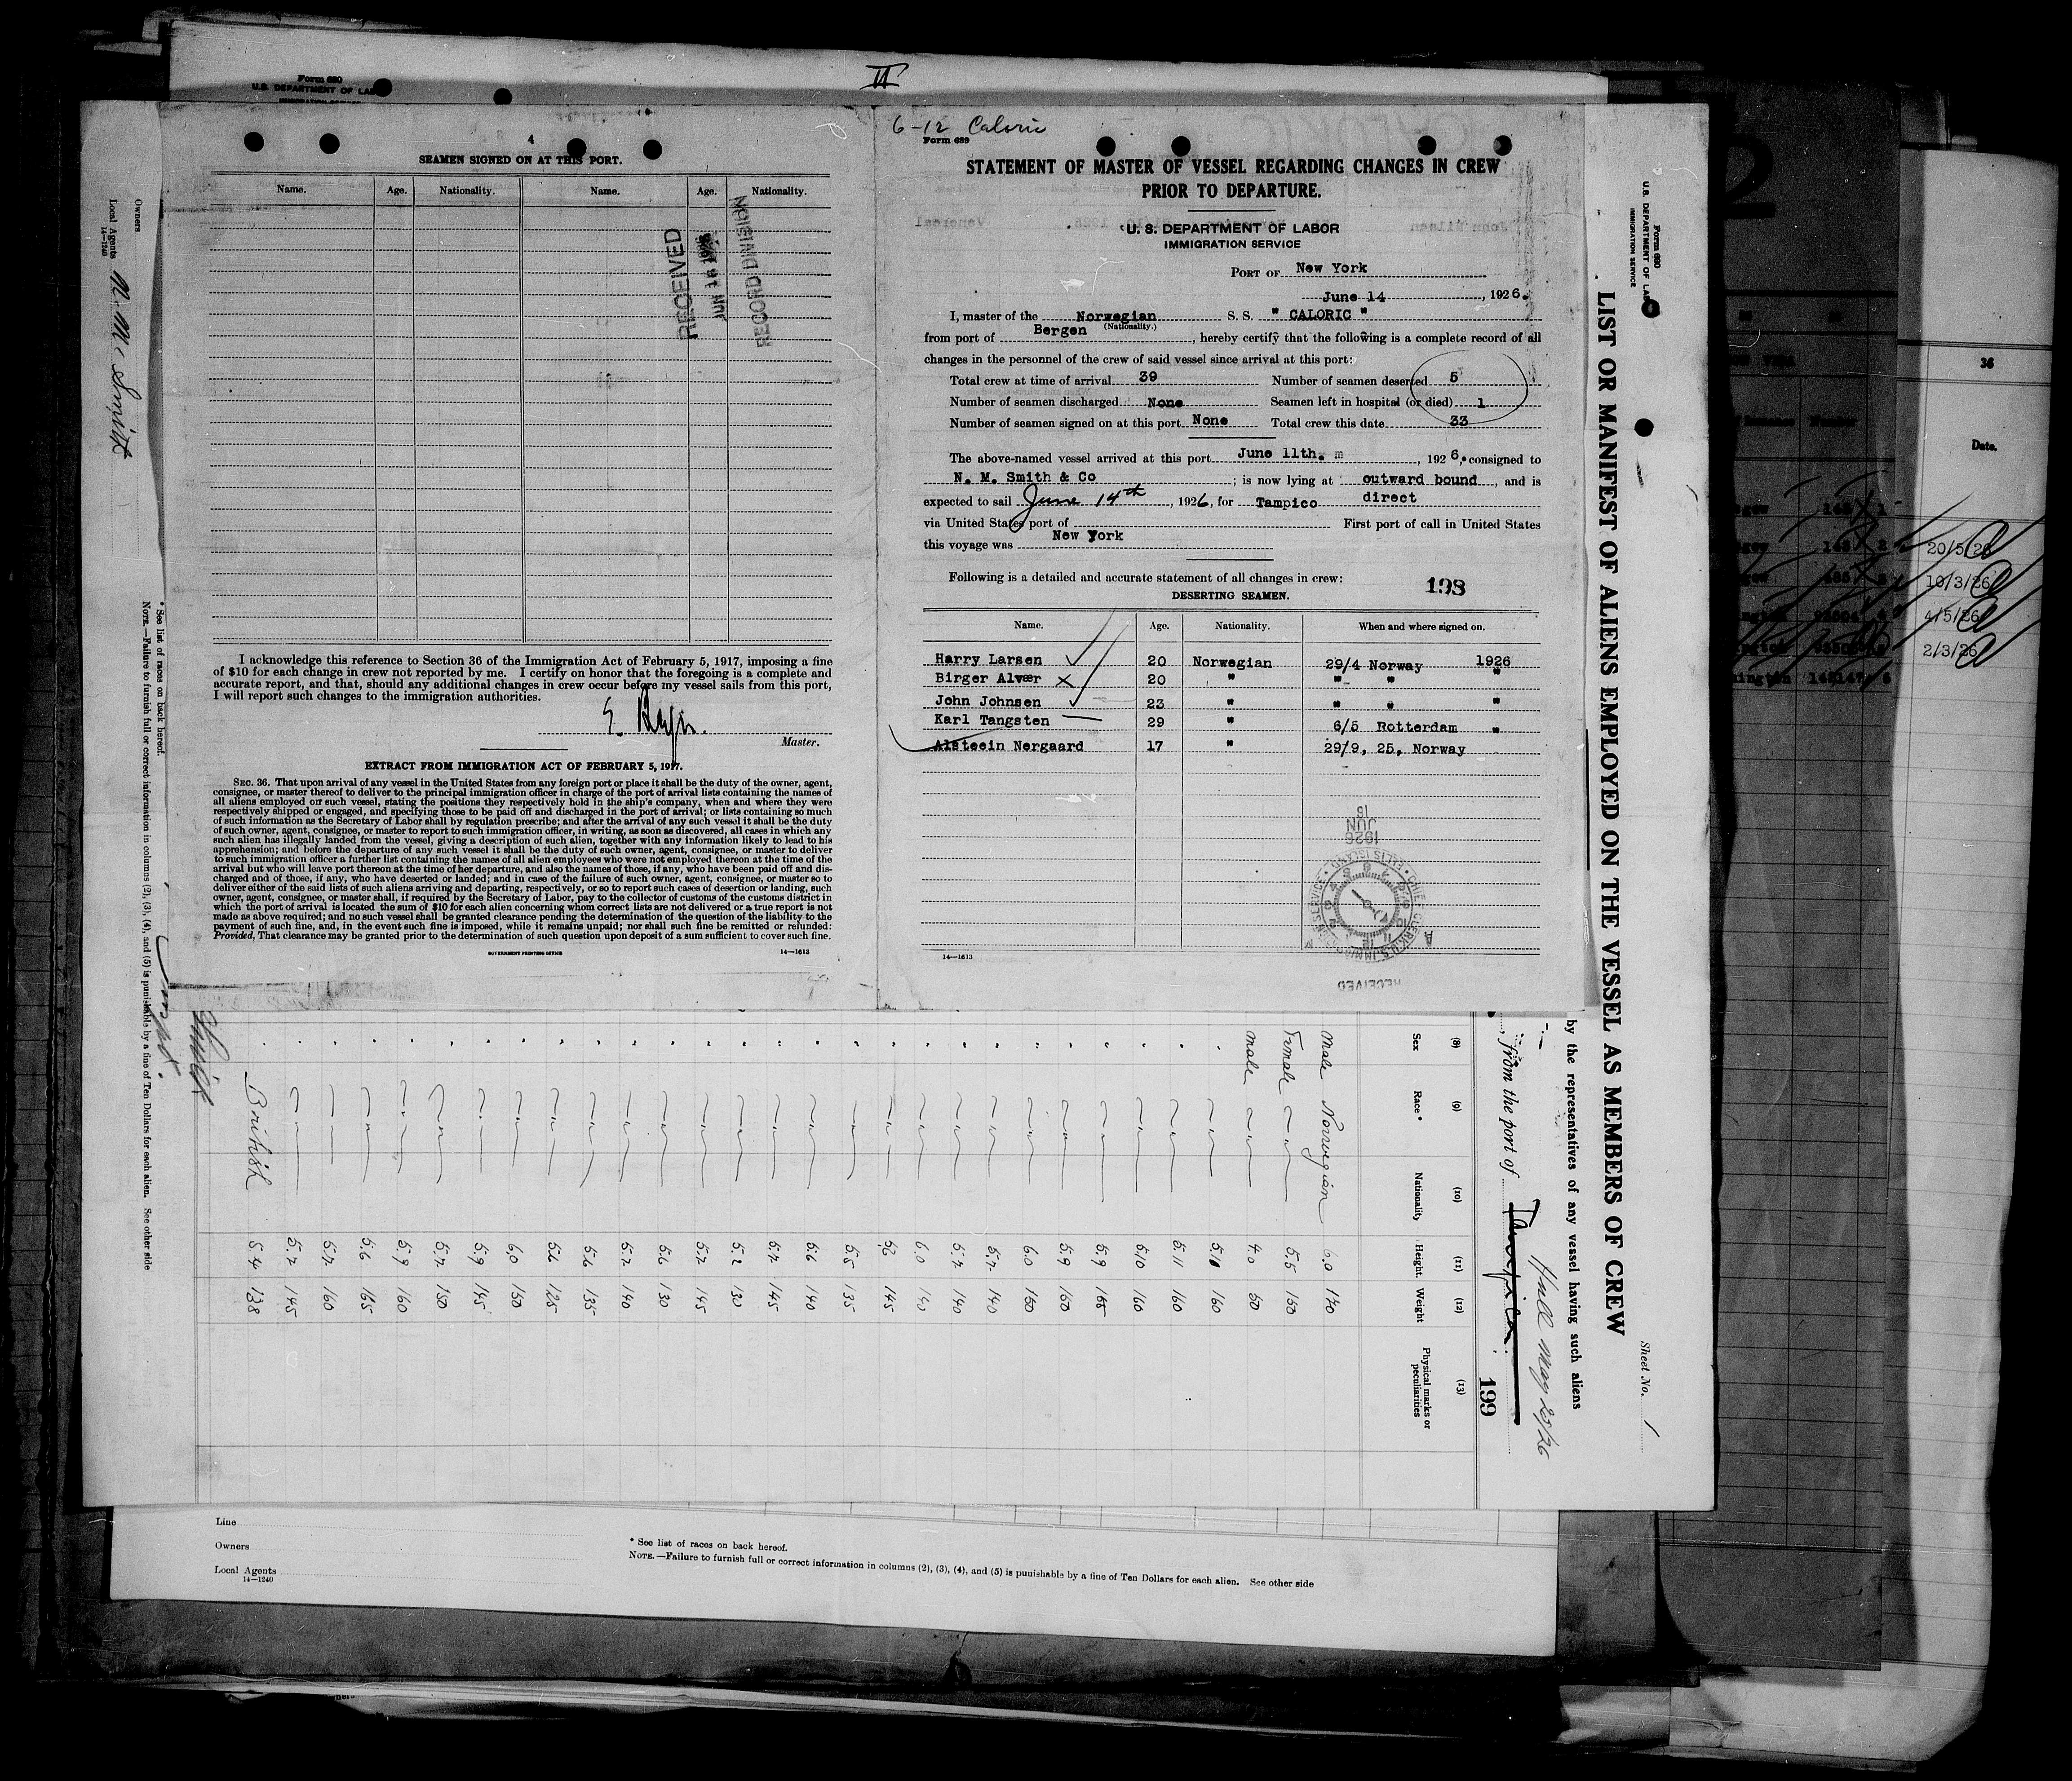 II
Form 680
U.S. DEPARTMENT OF LAB
4
SEAMEN SIGNED ON AT THIS PORT.
Name. Age. Nationality. Name. Age. Nationality.
RECEIVED
JUN 16 1926
RECORD DIVISION
I acknowledge this reference to Section 36 of the Immigration Act of February 5, 1917, imposing a fine
of $10 for each change in crew not reported by me. I certify on honor that the foregoing is a complete and
accurate report, and that, should any additional changes in crew occur before my vessel sails from this port,
I will report such changes to the immigration authorities.
Master.
EXTRACT FROM IMMIGRATION ACT OF FEBRUARY 5, 1917.
SEC. 36. That upon arrival of any vessel in the United States from any foreign port or place it shall be the duty of the owner, agent,
consignee, or master thereof to deliver to the principal immigration officer in charge of the port of arrival lists containing the names of
all aliens employed on such vessel, stating the positions they respectively hold in the ship's company, when and where they were
respectively shipped or engaged, and specifying those to be paid off and discharged in the port of arrival; or lists containing so much
of such information as the Secretary of Labor shall by regulation prescribe; and after the arrival of any such vessel it shall be the duty
of such owner, agent, consignee, or master to report to such immigration officer, in writing, as soon as discovered, all cases in which any
such alien has illegally landed from the vessel, giving a description of such alien, together with any information likely to lead to his
apprehension; and before the departure of any such vessel it shall be the duty of such owner, agent, consignee, or master to deliver
to such immigration officer a further list containing the names of all alien employees who were not employed thereon at the time of the
arrival but who will leave port thereon at the time of her departure, and also the names of those, if any, who have been paid off and dis-
charged and of those, if any, who have deserted or landed; and in case of the failure of such owner, agent, consignee, or master so to
deliver either of the said lists of such aliens arriving and departing, respectively, or so to report such cases of desertion or landing, such
owner, agent, consignee, or master shall, if required by the Secretary of Labor, pay to the collector of customs of the customs district in
which the port of arrival is located the sum of $10 for each alien concerning whom correct lists are not delivered or a true report is not
made as above required; and no such vessel shall be granted clearance pending the determination of the question of the liability to the
payment of such fine, and, in the event such fine is imposed, while it remains unpaid; nor shall such fine be remitted or refunded:
Provided, That clearance may be granted prior to the determination of such question upon deposit of a sum sufficient to cover such fine.
GOVERNMENT PRINTING OFFICE 14—1613
6-12 Caloric
Form 689
STATEMENT OF MASTER OF VESSEL REGARDING CHANGES IN CREW
PRIOR TO DEPARTURE.
U. S. DEPARTMENT OF LABOR
IMMIGRATION SERVICE
PORT OF New York
June 14, 1926.
I, master of the Norwegian S. S. " CALORIC "
(Nationality.)
from port of Bergen, hereby certify that the following is a complete record of all
changes in the personnel of the crew of said vessel since arrival at this port:
Total crew at time of arrival 39 Number of seamen deserted 5
Number of seamen discharged None Seamen left in hospital (or died) 1
Number of seamen signed on at this port None Total crew this date 33
The above-named vessel arrived at this port June 11th. m, 1926, consigned to
N. M. Smith & Co; is now lying at outward bound, and is
expected to sail June 14th, 1926, for Tampico direct
via United States port of First port of call in United States
this voyage was New York
Following is a detailed and accurate statement of all changes in crew: 198
DESERTING SEAMEN.
Name. Age. Nationality. When and where signed on.
Harry Larsen 20 Norwegian 29/4 Norway 1926
Birger Alvær 20 " " " "
John Johnsen 23 " " " "
Karl Tangsten 29 " 6/5 Rotterdam "
Alsteein Nergaard 17 " 29/9, 25, Norway
1926
JUN
16
RECEIVED
14—1613
Form 680
U.S. DEPARTMENT OF LAB
IMMIGRATION SERVICE
LIST OR MANIFEST OF ALIENS EMPLOYED ON THE VESSEL AS MEMBERS OF CREW
Sheet No. 1
by the representatives of any vessel having such aliens
from the port of Tampico
Hull May 25/26
199
(8) (9) (10) (11) (12) (13)
Sex Race* Nationality Height Weight Physical marks or peculiarities
male Norwegian 6.0 170
Female 5.5 150
male 4.0 50
British 5.4 138
Owners
Local Agents N. M. Smith
14—1240
* See list of races on back hereof.
NOTE.—Failure to furnish full or correct information in columns (2), (3), (4), and (5) is punishable by a fine of Ten Dollars for each alien. See other side
Line
Owners
Local Agents
14—1240
* See list of races on back hereof.
NOTE.—Failure to furnish full or correct information in columns (2), (3), (4), and (5) is punishable by a fine of Ten Dollars for each alien. See other side
2
36
Date.
20/5/26
10/3/26
4/5/26
2/3/26